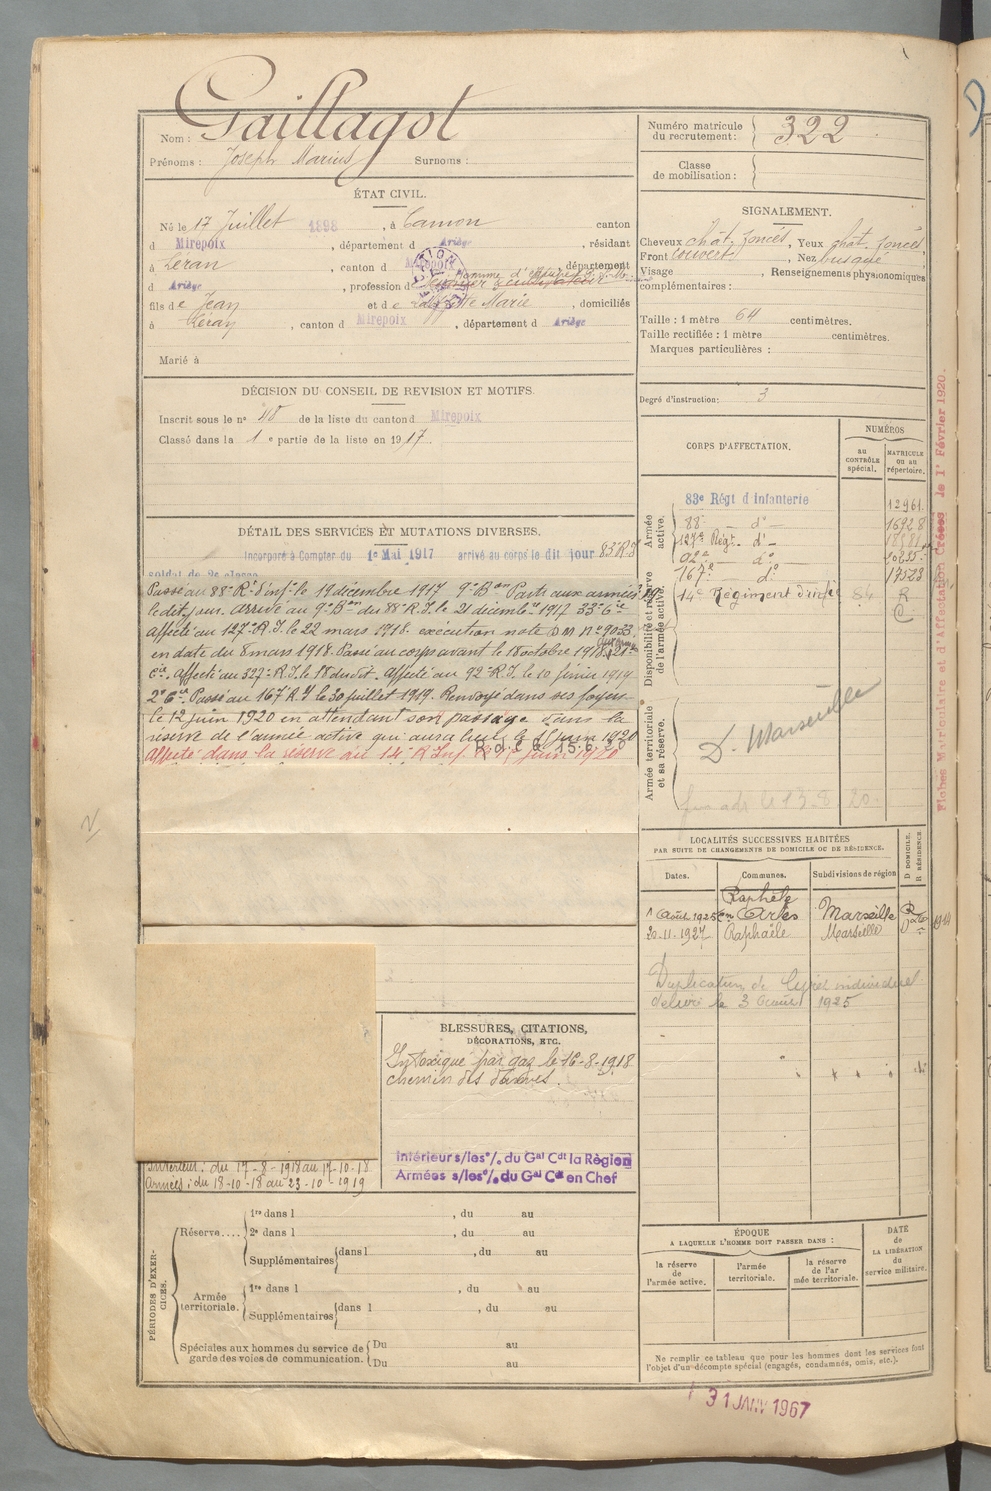 Nom : Gaillagot
Prénoms : Joseph Marius Surnoms :
ÉTAT CIVIL.
Né le 17 Juillet 1898, à Camon canton
d Mirepoix, département d Ariège, résidant
à Léran, canton d Mirepoix, département
d Ariège, profession d
fils de Jean et de Laffitte Marie, domiciliés
à Léran, canton d Mirepoix, département d Ariège
Marié à
DÉCISION DU CONSEIL DE REVISION ET MOTIFS.
Inscrit sous le n° 48 de la liste du canton d Mirepoix
Classé dans la 1 e partie de la liste en 1917.
DÉTAIL DES SERVICES ET MUTATIONS DIVERSES.
Incorporé à Compter du 1er Mai 1917 arrivé au corps le dit jour 83e R.I
soldat de 2e classe
Passé au 88e Rt d'infie le 19 décembre 1917 9e Bon Parti aux armées
le dit jour. Arrivé au 9e Bon du 88e R.I. le 21 décembre 1917 33e Cie
Affecté au 127e R.I. le 22 mars 1918. exécution note D M N° 9033
en date du 8 mars 1918. Passé au corps avant le 18 octobre 1918.
Cie. Affecté au 327e R.I. le 18 du dit. Affecté au 92e R.I. le 10 février 1919
2e Cie. Passé au 167e R.I le 30 juillet 1919. Renvoyé dans ses foyers
le 12 juin 1920 en attendant son passage dans la
réserve de l'armée active qui aura lieu le 15 juin 1920
Affecté dans la réserve au 14e R Inf. juin 1920
BLESSURES, CITATIONS,
DÉCORATIONS, ETC.
Intoxiqué par gaz le 16-8-1918
chemin des dames.
Intérieur s/les o/. du Gal Cdt la Région
Armées s/les o/. du Gal Cdt en Chef
Intérieur : du 17-8-1918 au 17-10-18
Armées : du 18-10-18 au 23-10-1919
PÉRIODES D'EXERCICES.
Réserve....
1re dans l , du au
2e dans l , du au
Supplémentaires dans l , du au
Armée territoriale.
1re dans l , du au
Supplémentaires dans l , du au
Spéciales aux hommes du service de garde des voies de communication.
Du au
Du au
Numéro matricule du recrutement : 322
Classe de mobilisation :
SIGNALEMENT.
Cheveux chât. foncés, Yeux chât. foncés
Front couvert, Nez busqué
Visage , Renseignements physionomiques
complémentaires :
Taille : 1 mètre 64 centimètres.
Taille rectifiée : 1 mètre centimètres.
Marques particulières :
Degré d'instruction : 3
CORPS D'AFFECTATION.
NUMÉROS
au CONTRÔLE spécial.
MATRICULE ou au répertoire.
Armée active.
83e Régt d'Infanterie 12961
88e — do — 16928
127e Régt. — do —
92e — do
167e do 17523
Disponibilité et réserve de l'armée active.
14e Régiment d'infie 84 R
C
Armée territoriale et sa réserve.
D. Marseille
LOCALITÉS SUCCESSIVES HABITÉES
PAR SUITE DE CHANGEMENTS DE DOMICILE OU DE RÉSIDENCE.
Dates. Communes. Subdivisions de région
D DOMICILE. R RÉSIDENCE.
Raphèle
1 Août 1925 en Arles Marseille R
20-11-1927 Raphaële Marseille D
Duplication de livret individuel
délivré le 3 août 1925
ÉPOQUE
A LAQUELLE L'HOMME DOIT PASSER DANS :
la réserve de l'armée active.
l'armée territoriale.
la réserve de l'ar mée territoriale.
DATE de LA LIBÉRATION du service militaire.
Ne remplir ce tableau que pour les hommes dont les services font
l'objet d'un décompte spécial (engagés, condamnés, omis, etc.).
31 JANV 1967
Fiches Matriculaire et d'Affectation Créées le 1er Février 1920.